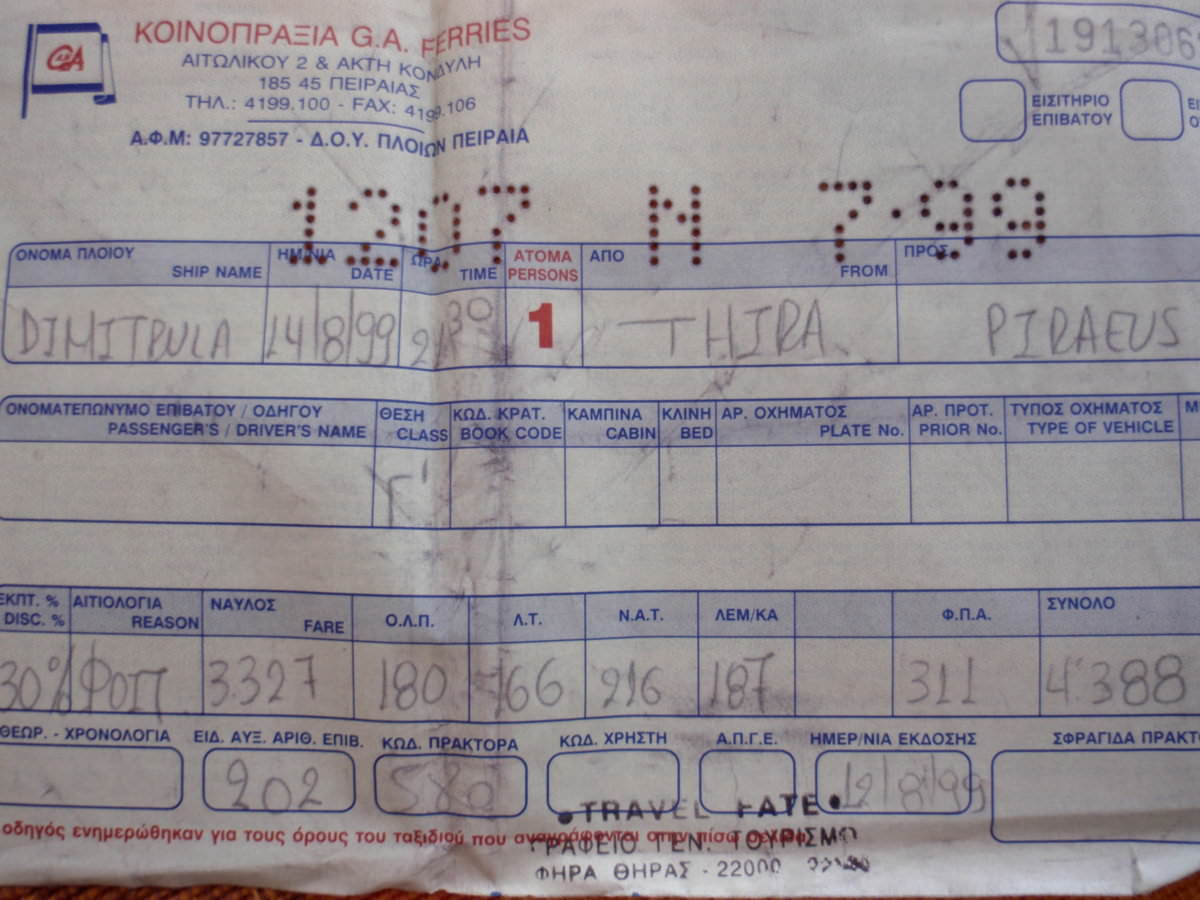 GA
ΚΟΙΝΟΠΡΑΞΙΑ G.A. FERRIES
ΑΙΤΩΛΙΚΟΥ 2 & ΑΚΤΗ ΚΟΝΔΥΛΗ
185 45 ΠΕΙΡΑΙΑΣ
ΤΗΛ.: 4199.100 - FAX: 4199.106
Α.Φ.Μ: 97727857 - Δ.Ο.Υ. ΠΛΟΙΩΝ ΠΕΙΡΑΙΑ
191306
ΕΙΣΙΤΗΡΙΟ
ΕΠΙΒΑΤΟΥ
1207 N 7.99
ΟΝΟΜΑ ΠΛΟΙΟΥ ΗΜ/ΝΙΑ ΩΡΑ ΑΤΟΜΑ ΑΠΟ ΠΡΟΣ
SHIP NAME DATE TIME PERSONS FROM
DIMITRULA 14/8/99 21 30 1 THIRA PIRAEUS
ΟΝΟΜΑΤΕΠΩΝΥΜΟ ΕΠΙΒΑΤΟΥ / ΟΔΗΓΟΥ ΘΕΣΗ ΚΩΔ. ΚΡΑΤ. ΚΑΜΠΙΝΑ ΚΛΙΝΗ ΑΡ. ΟΧΗΜΑΤΟΣ ΑΡ. ΠΡΟΤ. ΤΥΠΟΣ ΟΧΗΜΑΤΟΣ
PASSENGER'S / DRIVER'S NAME CLASS BOOK CODE CABIN BED PLATE No. PRIOR No. TYPE OF VEHICLE
Γ'
ΕΚΠΤ. % ΑΙΤΙΟΛΟΓΙΑ ΝΑΥΛΟΣ Ο.Λ.Π. Λ.Τ. Ν.Α.Τ. ΛΕΜ/ΚΑ Φ.Π.Α. ΣΥΝΟΛΟ
DISC. % REASON FARE
30% ΦΟΙΤ 3.327 180 166 216 187 311 4.388
ΘΕΩΡ. - ΧΡΟΝΟΛΟΓΙΑ ΕΙΔ. ΑΥΞ. ΑΡΙΘ. ΕΠΙΒ. ΚΩΔ. ΠΡΑΚΤΟΡΑ ΚΩΔ. ΧΡΗΣΤΗ Α.Π.Γ.Ε. ΗΜΕΡ/ΝΙΑ ΕΚΔΟΣΗΣ ΣΦΡΑΓΙΔΑ ΠΡΑΚΤΟ
202 580 12/8/99
TRAVEL FATE
οδηγός ενημερώθηκαν για τους όρους του ταξιδιού που αναγράφονται στην πίσω
ΓΡΑΦΕΙΟ ΓΕΝ. ΤΟΥΡΙΣΜΟ
ΦΗΡΑ ΘΗΡΑΣ - 22000